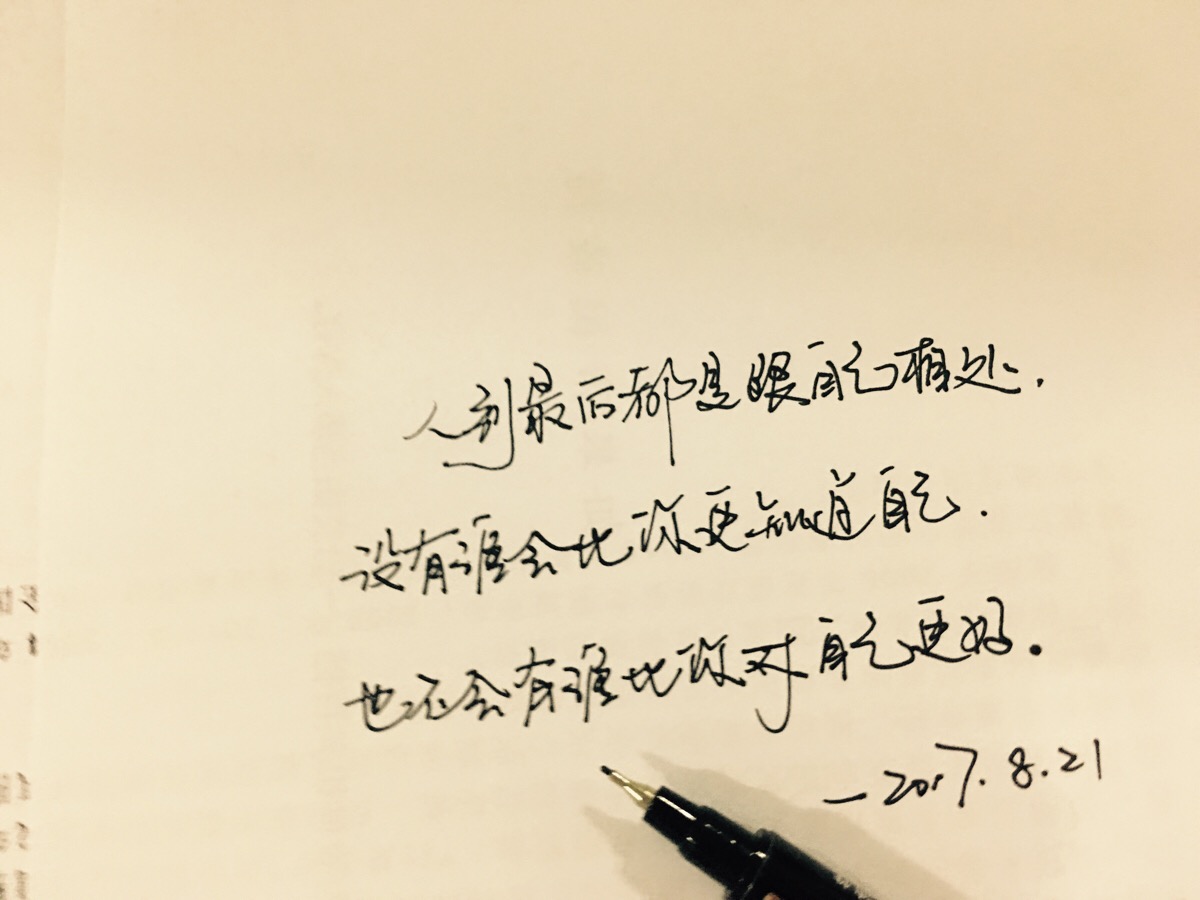 人到最后都是跟自己相处.
没有谁会比你更知道自己.
也不会有谁比你对自己更好.
—2017.8.21